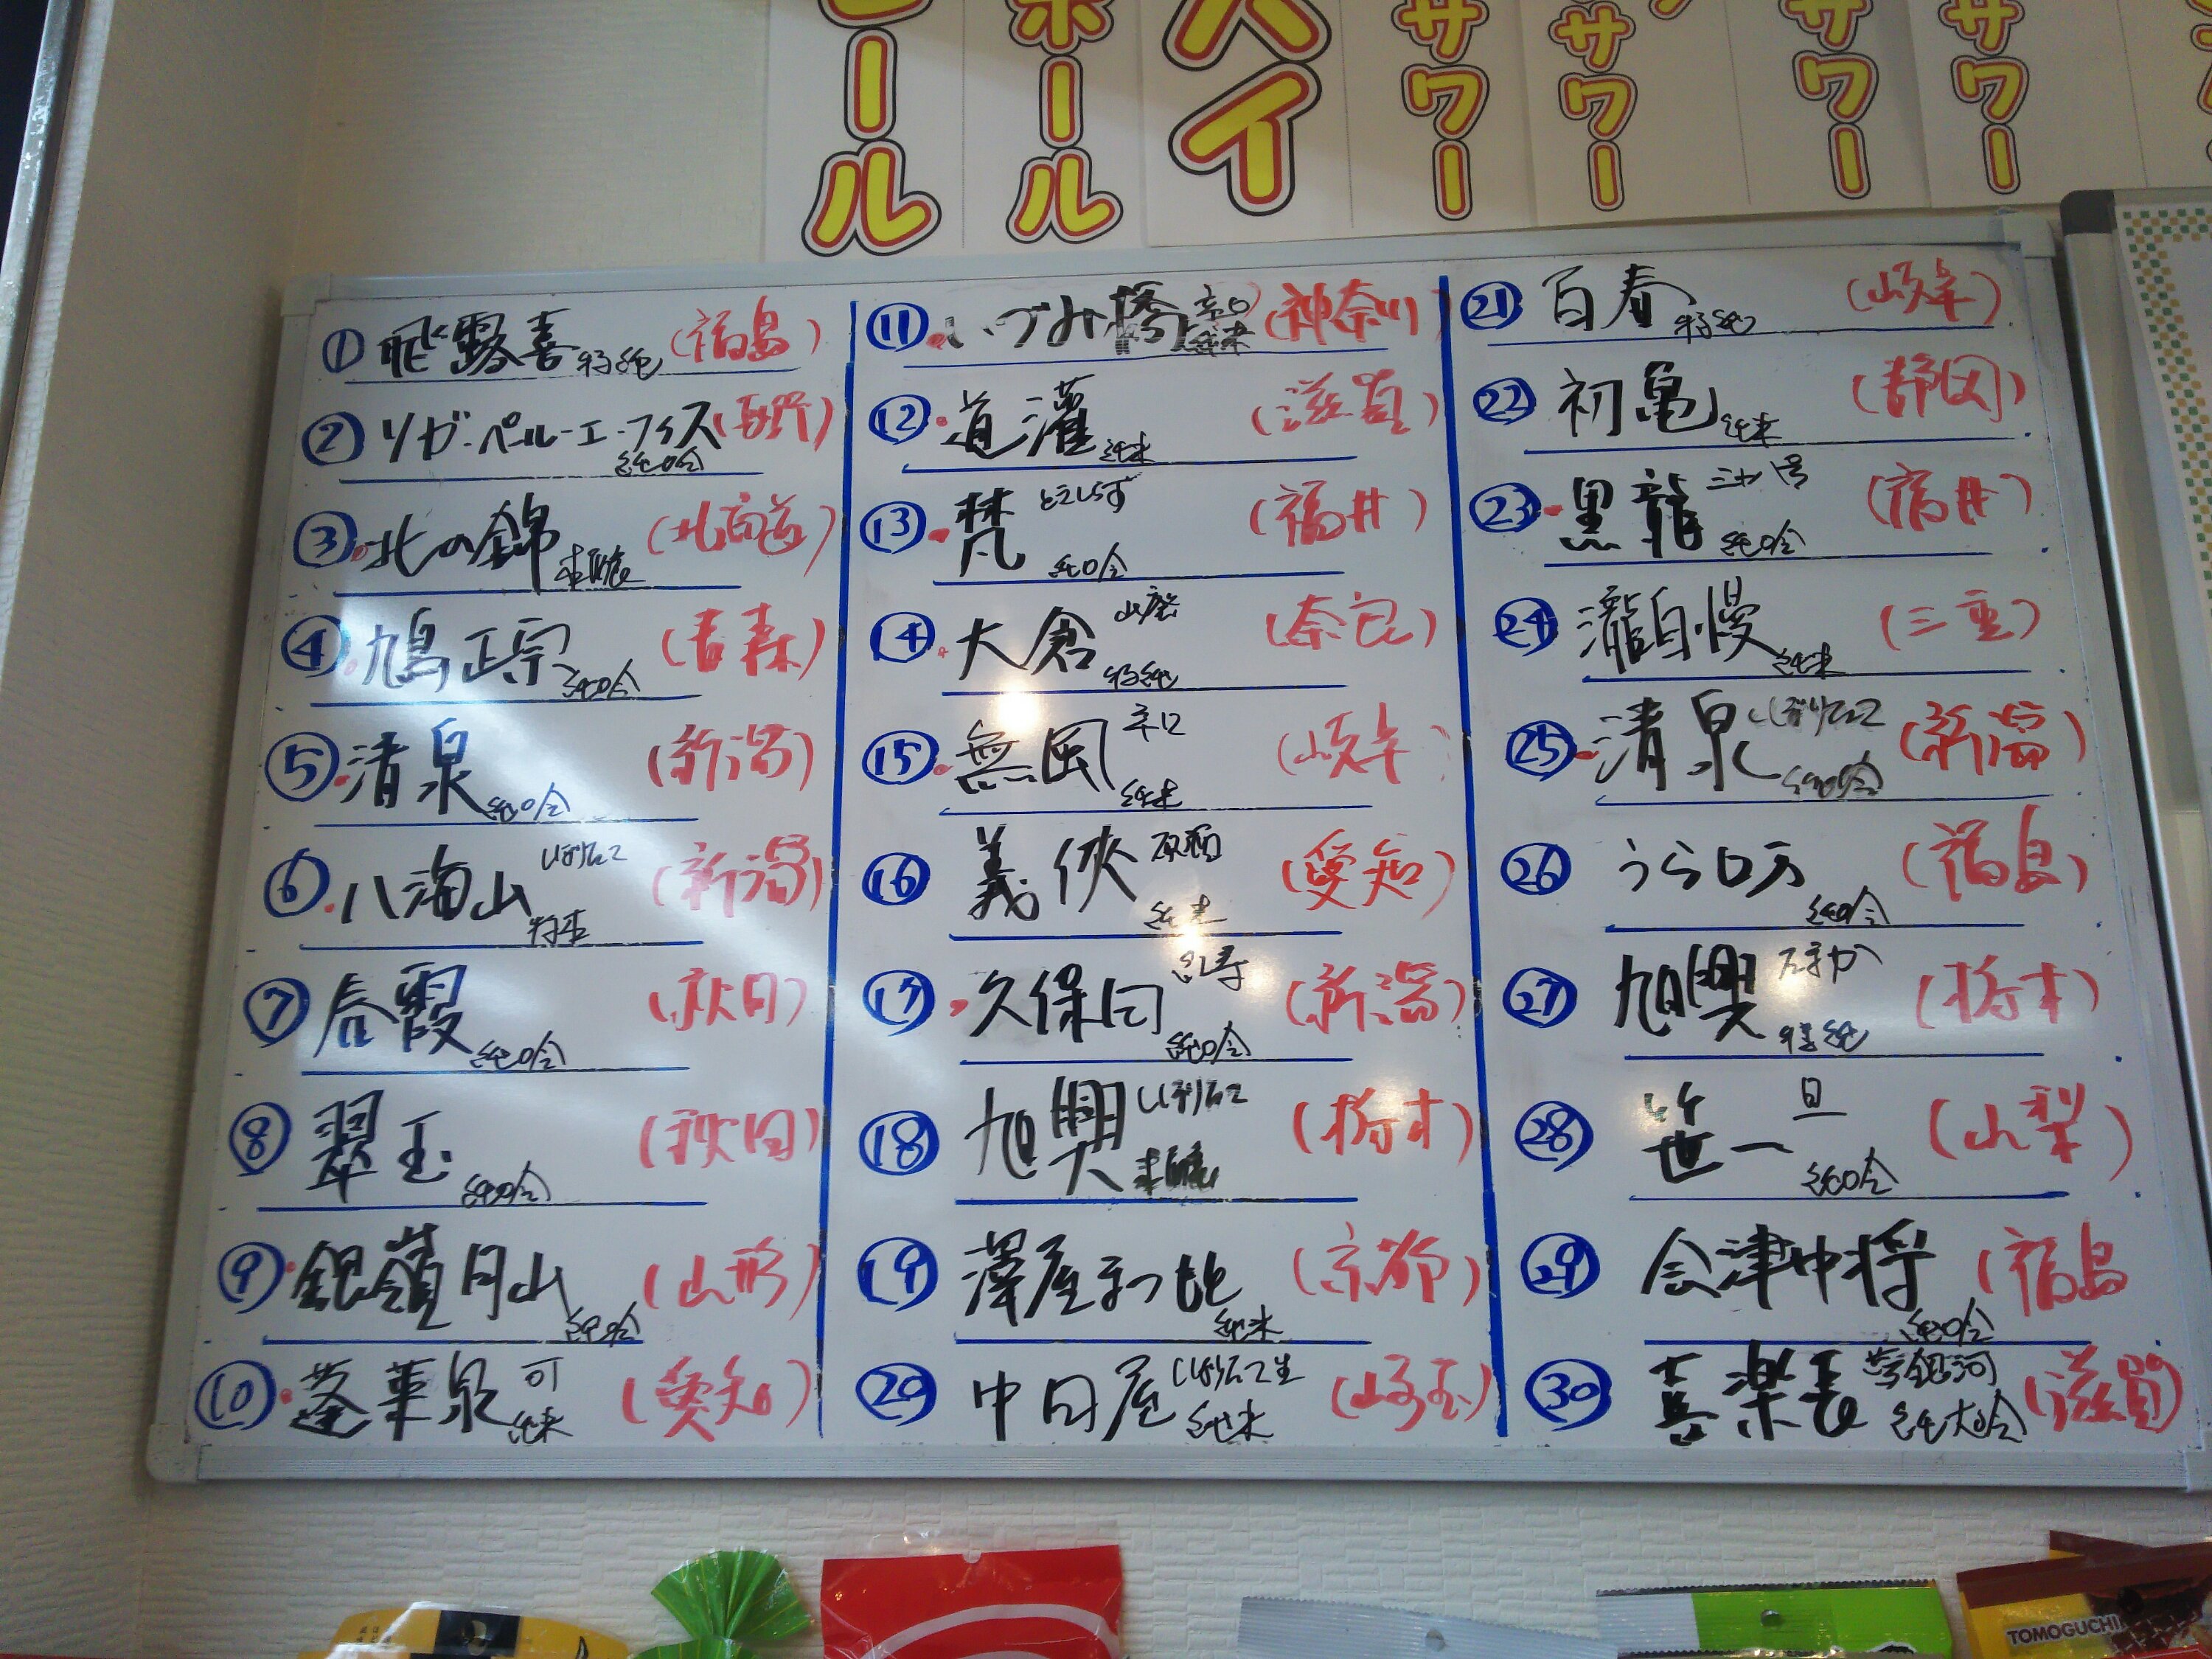 ール
ホール
ハイ
サワー
サワー
サワー
サワー
① 飛露喜 特純 (福島)
② ソガ・ペール・エ・フィス 純吟 (長野)
③ 北の錦 本醸 (北海道)
④ 鳩正宗 純吟 (青森)
⑤ 清泉 純吟 (新潟)
⑥ 八海山 しぼりたて 特本 (新潟)
⑦ 春霞 純吟 (秋田)
⑧ 翠玉 純吟 (秋田)
⑨ 銀嶺月山 純吟 (山形)
⑩ 蓬莱泉 可 純米 (愛知)
⑪ いづみ橋 辛口 純米 (神奈川)
⑫ 道灌 純米 (滋賀)
⑬ 梵 ときしらず 純吟 (福井)
⑭ 大倉 山廃 特純 (奈良)
⑮ 無風 辛口 純米 (岐阜)
⑯ 義侠 原酒 純米 (愛知)
⑰ 久保田 純吟 (新潟)
⑱ 旭興 しぼりたて 本醸 (栃木)
⑲ 澤屋まつもと 純米 (京都)
⑳ 中田屋 しぼりたて生 純米 (埼玉)
㉑ 百春 特純 (岐阜)
㉒ 初亀 純米 (静岡)
㉓ 黒龍 三十八号 純吟 (福井)
㉔ 瀧自慢 純米 (三重)
㉕ 清泉 しぼりたて 純吟 (新潟)
㉖ うらロ万 純吟 (福島)
㉗ 旭興 たまか 特純 (栃木)
㉘ 笹一 旦 純吟 (山梨)
㉙ 会津中将 純吟 (福島
㉚ 喜楽長 夢銀河 純大吟 (滋賀)
TOMOGUCHI